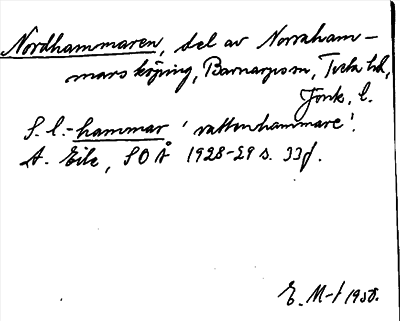 Nordhammaren, del av Norraham-
mars köping, Barnarps sn, Tveta hd,
Jönk. l.
S. l. -hammar 'vattenhammare'.
A. Ejle, SOÅ 1928-29 s. 33 f.
E. M-t 1950.